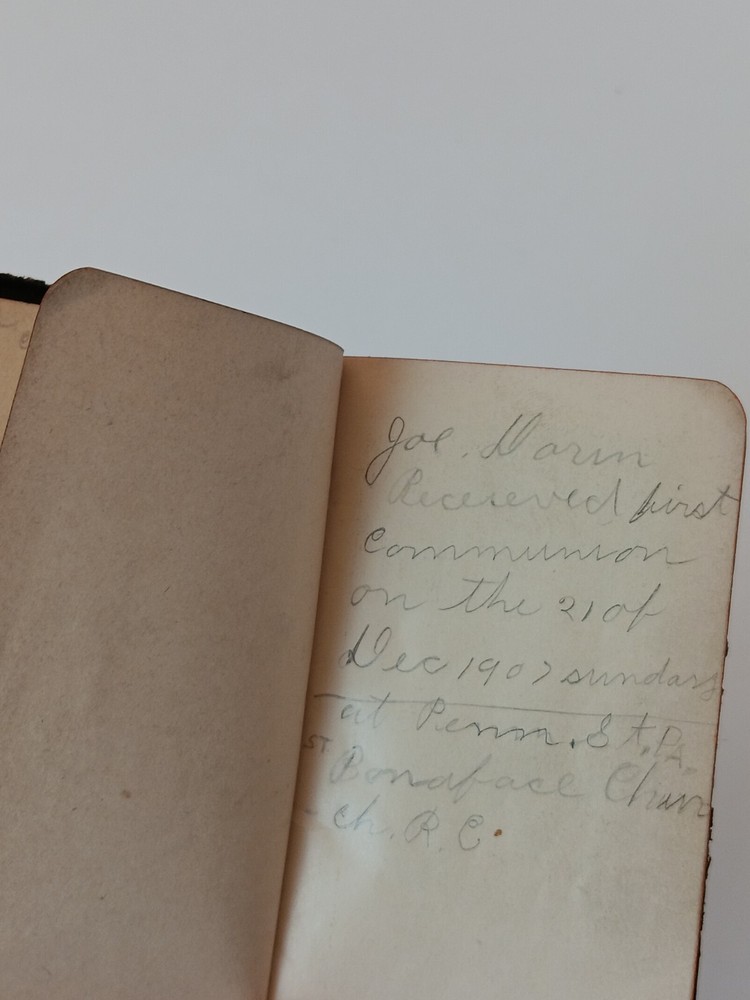 Joe. Dorin
Receieved first
communion
on the 21 of
Dec 1907 sunday
at Penn. St. PA.
ST. Bonaface Chur
-ch. R. C.